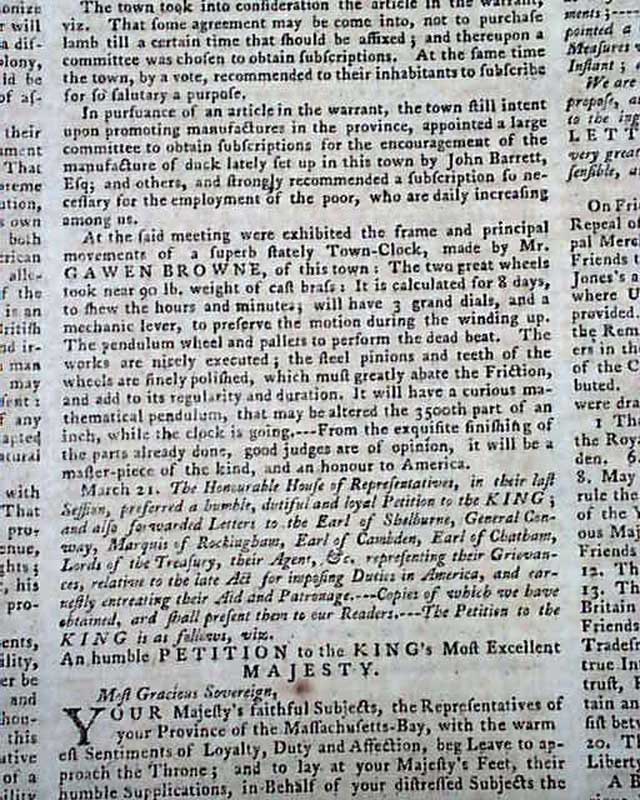 onize
r will
a diſ-
olony,
ld be
of aſ-
their
That
preme
ution,
s own
both
erican
alle-
f the
is an
Britiſh
nd ir-
man
may
ſent :
f any
apted
atural
with
That
pro-
enue,
ghts ;
, his
pro-
ents,
ility,
er be
and
hou-
this
of a
The town took into conſideration the article in the warrant,
viz. That ſome agreement may be come into, not to purchaſe
lamb till a certain time that ſhould be affixed ; and thereupon a
committee was choſen to obtain ſubſcriptions. At the ſame time
the town, by a vote, recommended to their inhabitants to ſubſcribe
for ſo ſalutary a purpoſe.
In purſuance of an article in the warrant, the town ſtill intent
upon promoting manufactures in the province, appointed a large
committee to obtain ſubſcriptions for the encouragement of the
manufacture of duck lately ſet up in this town by John Barrett,
Eſq; and others, and ſtrongly recommended a ſubſcription ſo ne-
ceſſary for the employment of the poor, who are daily increaſing
among us.
At the ſaid meeting were exhibited the frame and principal
movements of a ſuperb ſtately Town-Clock, made by Mr.
GAWEN BROWNE, of this town : The two great wheels
took near 90 lb. weight of caſt braſs : It is calculated for 8 days,
to ſhew the hours and minutes; will have 3 grand dials, and a
mechanic lever, to preſerve the motion during the winding up.
The pendulum wheel and pallets to perform the dead beat. The
works are nicely executed ; the ſteel pinions and teeth of the
wheels are finely poliſhed, which muſt greatly abate the Friction,
and add to its regularity and duration. It will have a curious ma-
thematical pendulum, that may be altered the 3500th part of an
inch, while the clock is going.---From the exquiſite finiſhing of
the parts already done, good judges are of opinion, it will be a
maſter-piece of the kind, and an honour to America.
March 21. The Honourable Houſe of Repreſentatives, in their laſt
Seſſion, preferred a humble, dutiful and loyal Petition to the KING ;
and alſo forwarded Letters to the Earl of Shelburne, General Con-
way, Marquis of Rockingham, Earl of Cambden, Earl of Chatham,
Lords of the Treaſury, their Agent, &c. repreſenting their Grievan-
ces, relative to the late Act for impoſing Duties in America, and ear-
neſtly entreating their Aid and Patronage.---Copies of which we have
obtained, and ſhall preſent them to our Readers.---The Petition to the
KING is as follows, viz.
An humble PETITION to the KING's Moſt Excellent
MAJESTY.
Moſt Gracious Sovereign,
YOUR Majeſty's faithful Subjects, the Repreſentatives of
your Province of the Maſſachuſetts-Bay, with the warm
eſt Sentiments of Loyalty, Duty and Affection, beg Leave to ap-
proach the Throne ; and to lay at your Majeſty's Feet, their
humble Supplications, in Behalf of your diſtreſſed Subjects the
ments ;---
pointed a
Meaſures
Inſtant ;
We are
propoſe, a
to the ing
LETT
very great
ſenſible, a
On Fri
Repeal of
pal Merc
Friends t
Jones's a
where U
provided.
the Rem
ers in the
of the C
buted.
were dra
1 The
the Roya
den. 6.
8. May
rule the
of the Y
ous Maj
Friends
12. Th
13. Th
Britain
Friends
Tradeſm
true Int
truſt, F
tain an
ſiſt betw
20. T
Liberty
A B